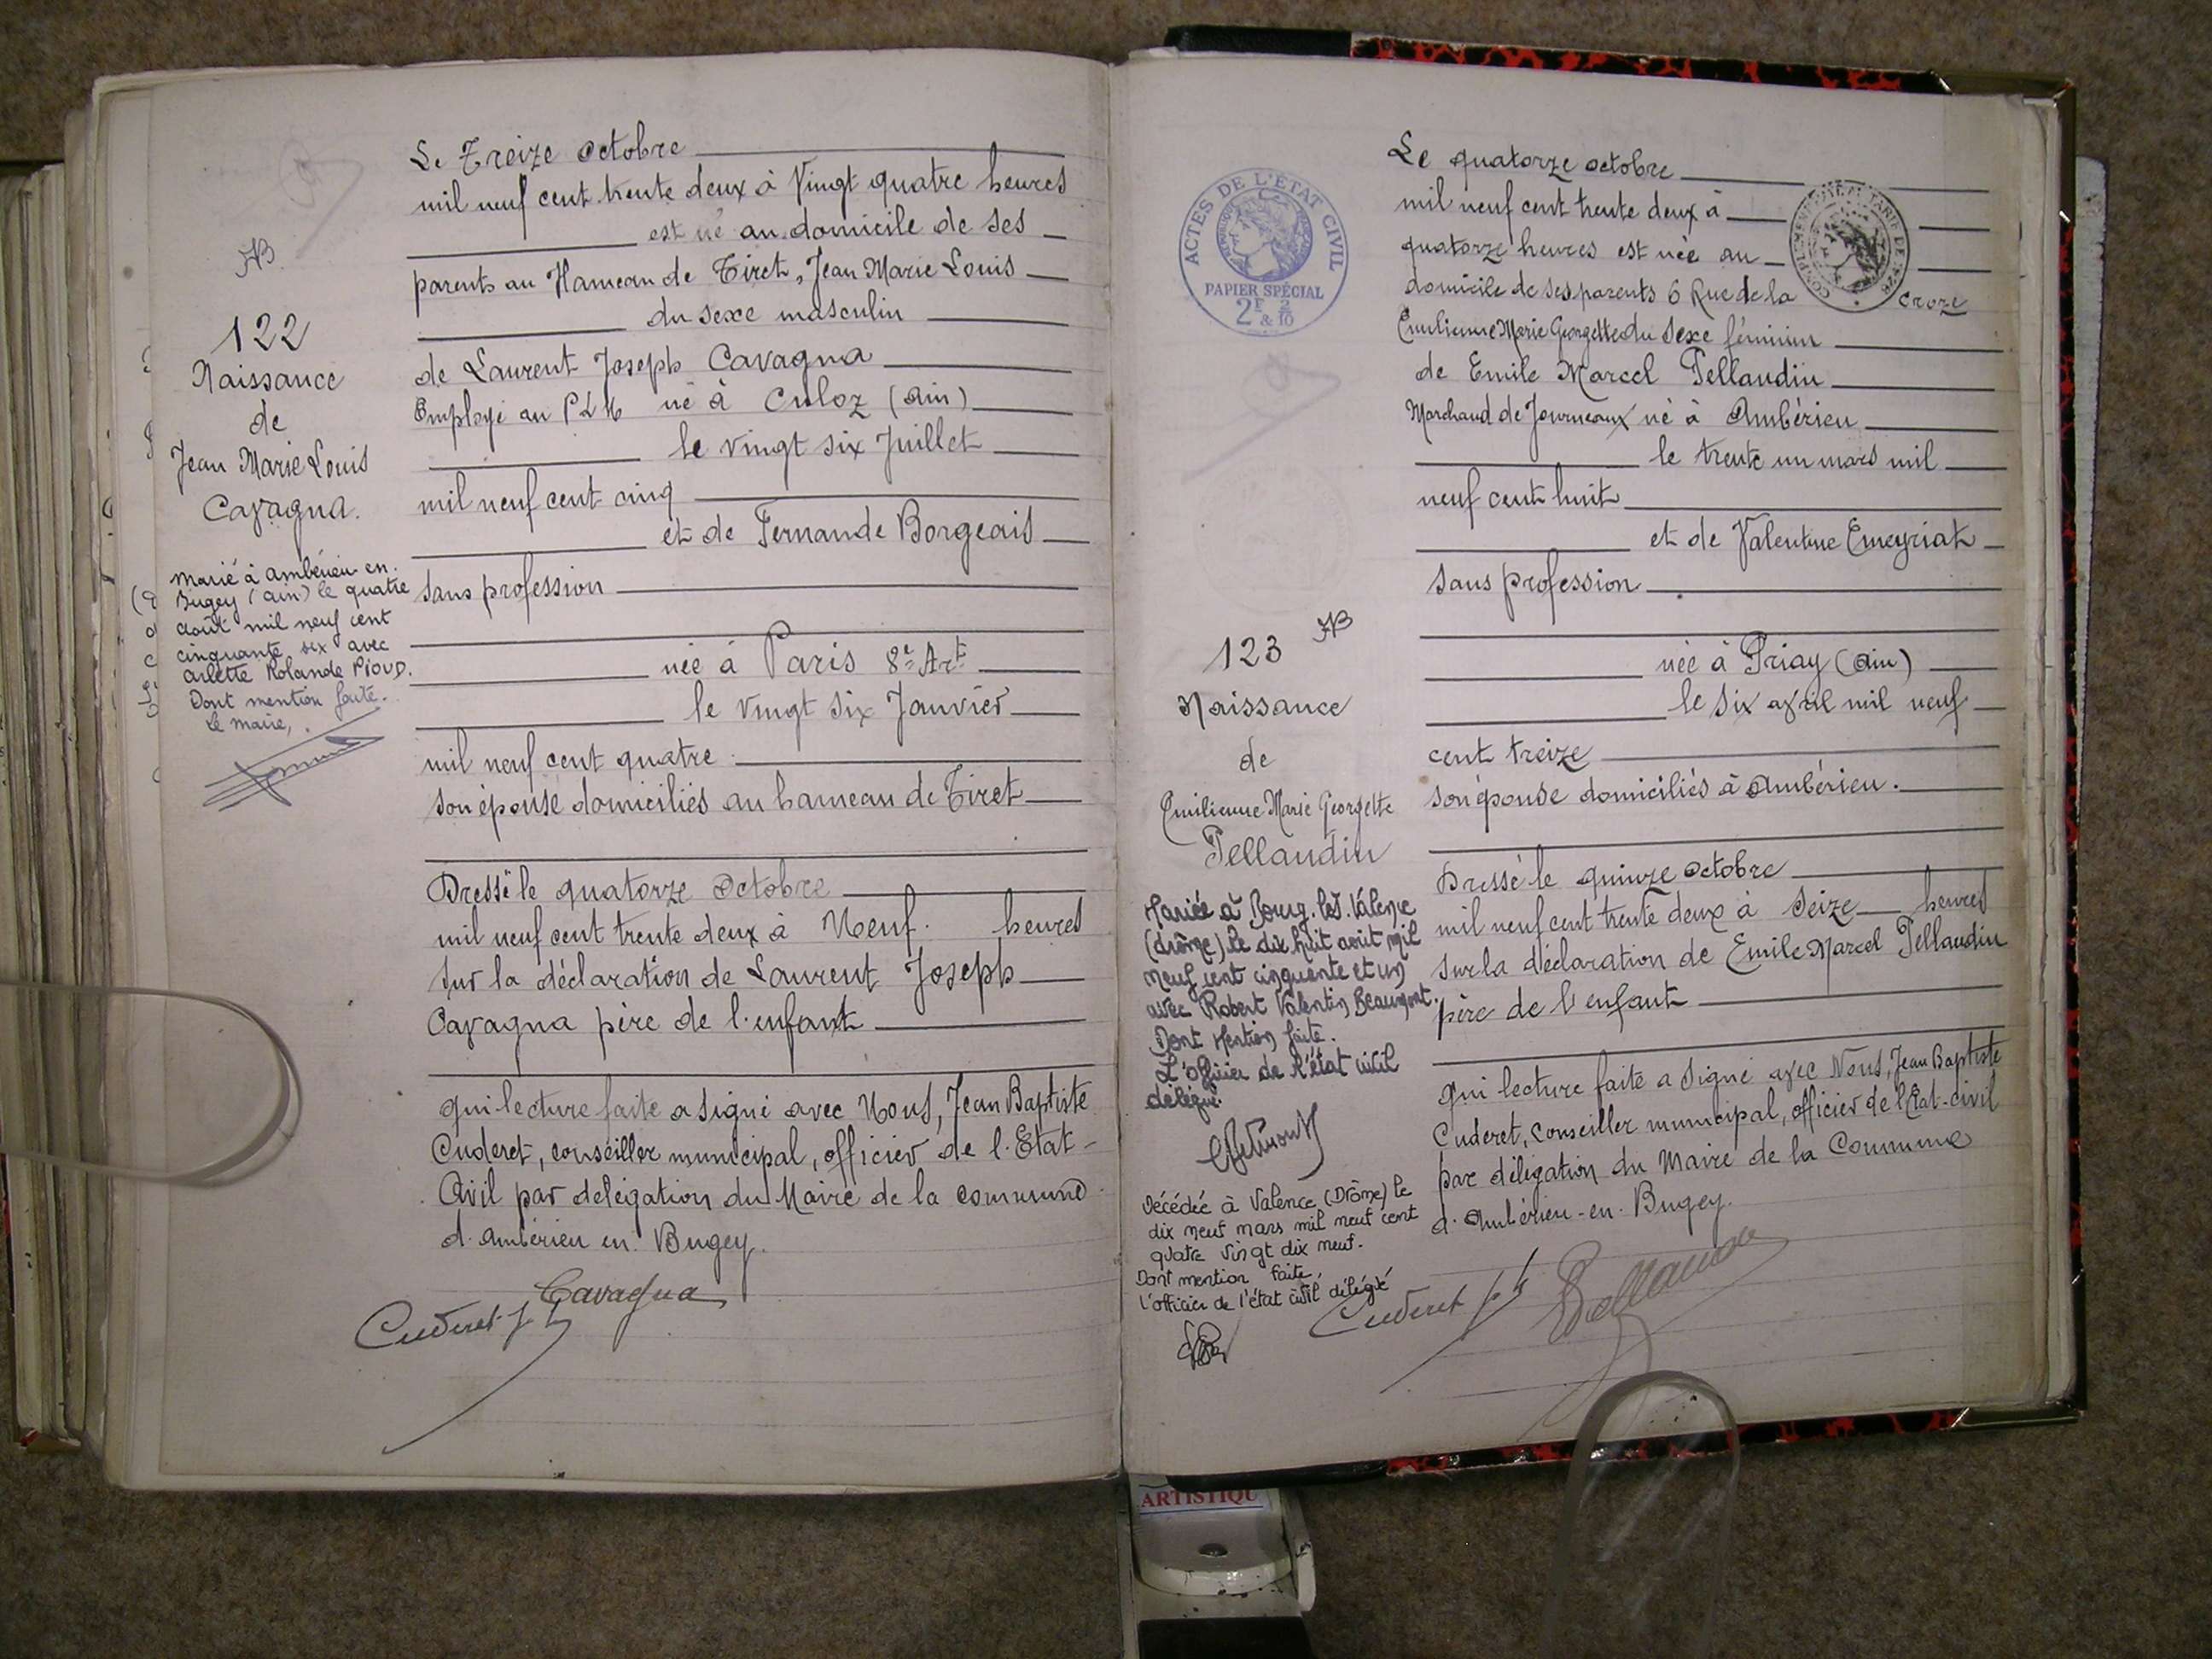 NB
122
Naissance
de
Jean Marie Louis
Cavagna.
Marié à Ambérieu en.
Bugey (ain) le quatre
août mil neuf cent
cinquante six avec
Arlette Rolande PIOUD.
Dont mention faite.
Le maire,
Le Treize Octobre
mil neuf cent trente deux à Vingt quatre heures
est né au domicile de ses
parents au Hameau de Tiret, Jean Marie Louis
du sexe masculin
de Laurent Joseph Cavagna
Employé au PLM né à Culoz (Ain)
le vingt six Juillet
mil neuf cent cinq
et de Fernande Borgeais
sans profession
née à Paris 8e Art
le vingt six Janvier
mil neuf cent quatre
son épouse domiciliés au hameau de Tiret
Dressé le quatorze Octobre
mil neuf cent trente deux à Neuf. heures
sur la déclaration de Laurent Joseph
Cavagna père de l'enfant
qui lecture faite a signé avec Nous, Jean Baptiste
Cuderet, conseiller municipal, officier de l'Etat-
Civil par délégation du Maire de la commune
d'Ambérieu en Bugey.
Cavagna
Cuderet J B
ACTES DE L'ÉTAT CIVIL
PAPIER SPÉCIAL
2F & 2/10
NB
123
Naissance
de
Emilienne Marie Georgette
Pellaudin
Mariée à Bourg-lès-Valence
(drôme) le dix huit août mil
neuf cent cinquante et un
avec Robert Valentin Beaumont.
Dont Mention faite.
L'officier de l'état civil
délégué.
Décédée à Valence (Drôme) le
dix neuf mars mil neuf cent
quatre vingt dix neuf.
Dont mention faite,
L'officier de l'état civil délégué
Le quatorze octobre
mil neuf cent trente deux à
quatorze heures est née au
domicile de ses parents 6 Rue de la Croze
Emilienne Marie Georgette du sexe féminin
de Emile Marcel Pellaudin
Marchand de Journeaux né à Ambérieu
le trente un mars mil
neuf cent huit
et de Valentine Emeyriat
sans profession
née à Priay (Ain)
le six avril mil neuf
cent treize
son épouse domiciliés à Ambérieu.
Dressé le quinze octobre
mil neuf cent trente deux à Seize heures
sur la déclaration de Emile Marcel Pellaudin
père de l'enfant
qui lecture faite a signé avec Nous, Jean Baptiste
Cuderet, conseiller municipal, officier de l'Etat-civil
par délégation du Maire de la Commune
d'Ambérieu-en-Bugey.
Cuderet J B Pellaudin
ARTISTIQU